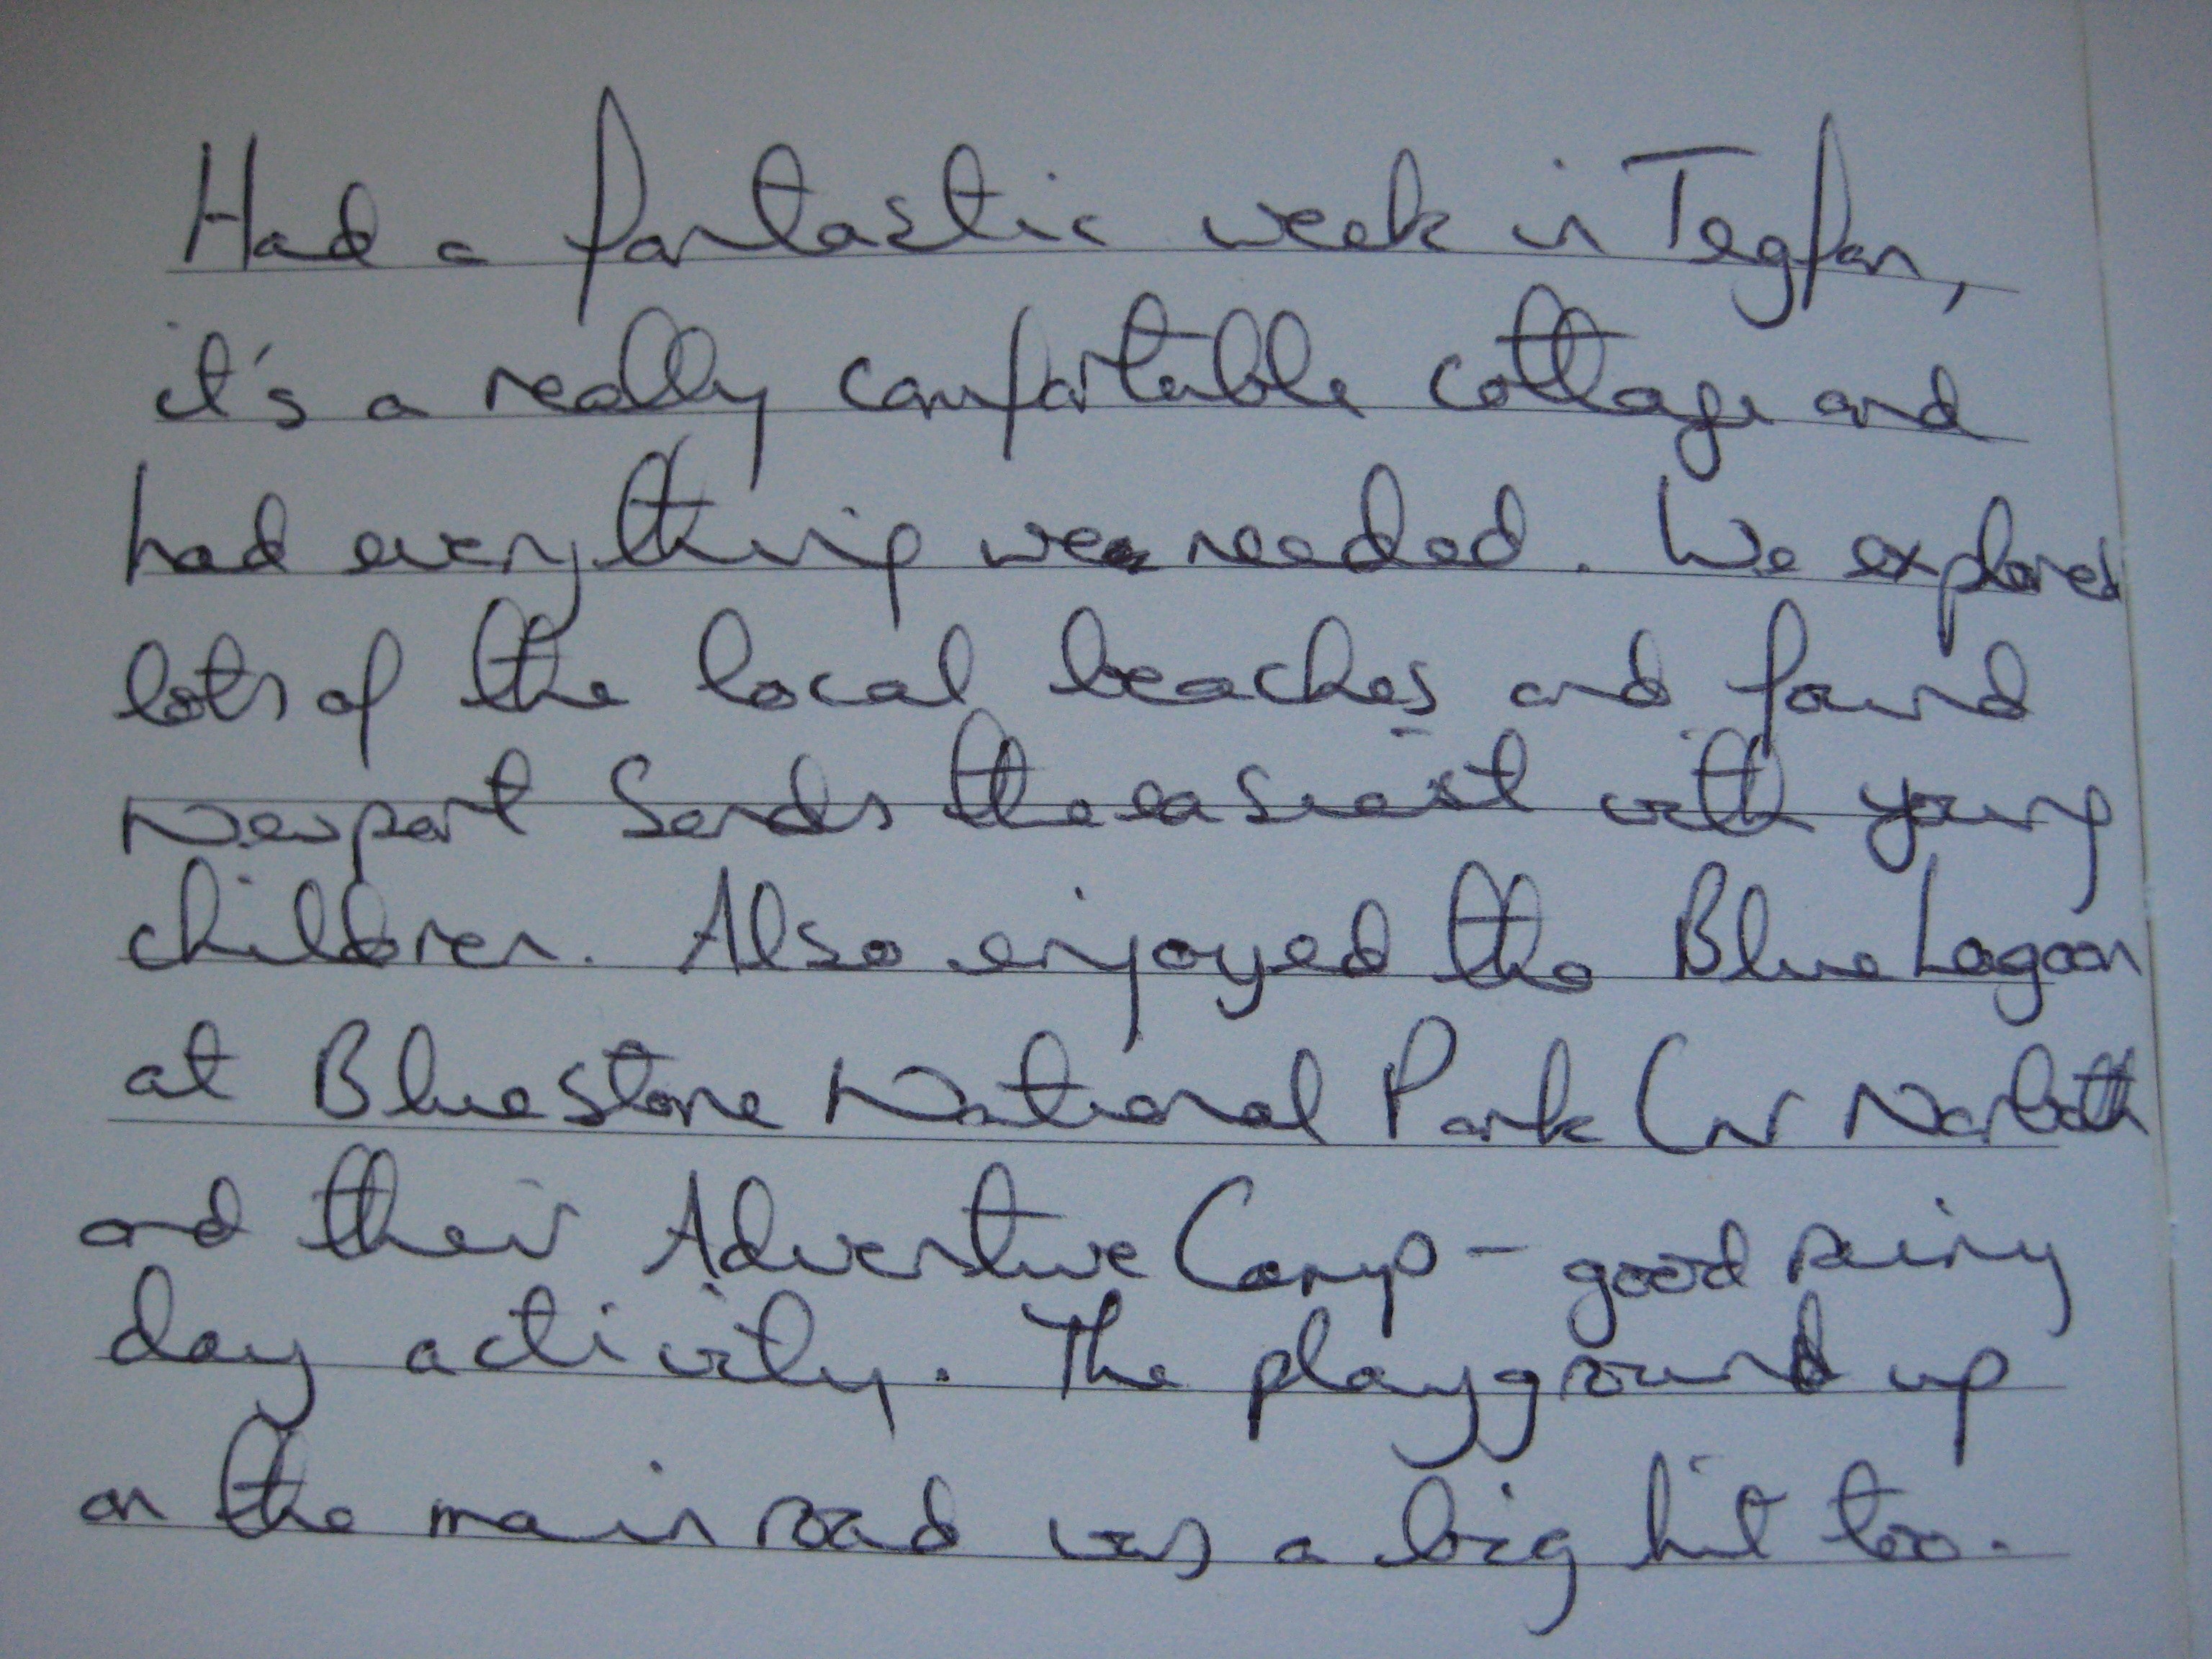 Had a fantastic week in Tegfan,
it's a really comfortable cottage and
had everything we needed. We explored
lots of the local beaches and found
Newport Sands the easiest with young
children. Also enjoyed the Blue Lagoon
at Bluestone National Park (nr Narberth
and their Adventure Camp - good rainy
day activity. The playground up
on the main road was a big hit too.